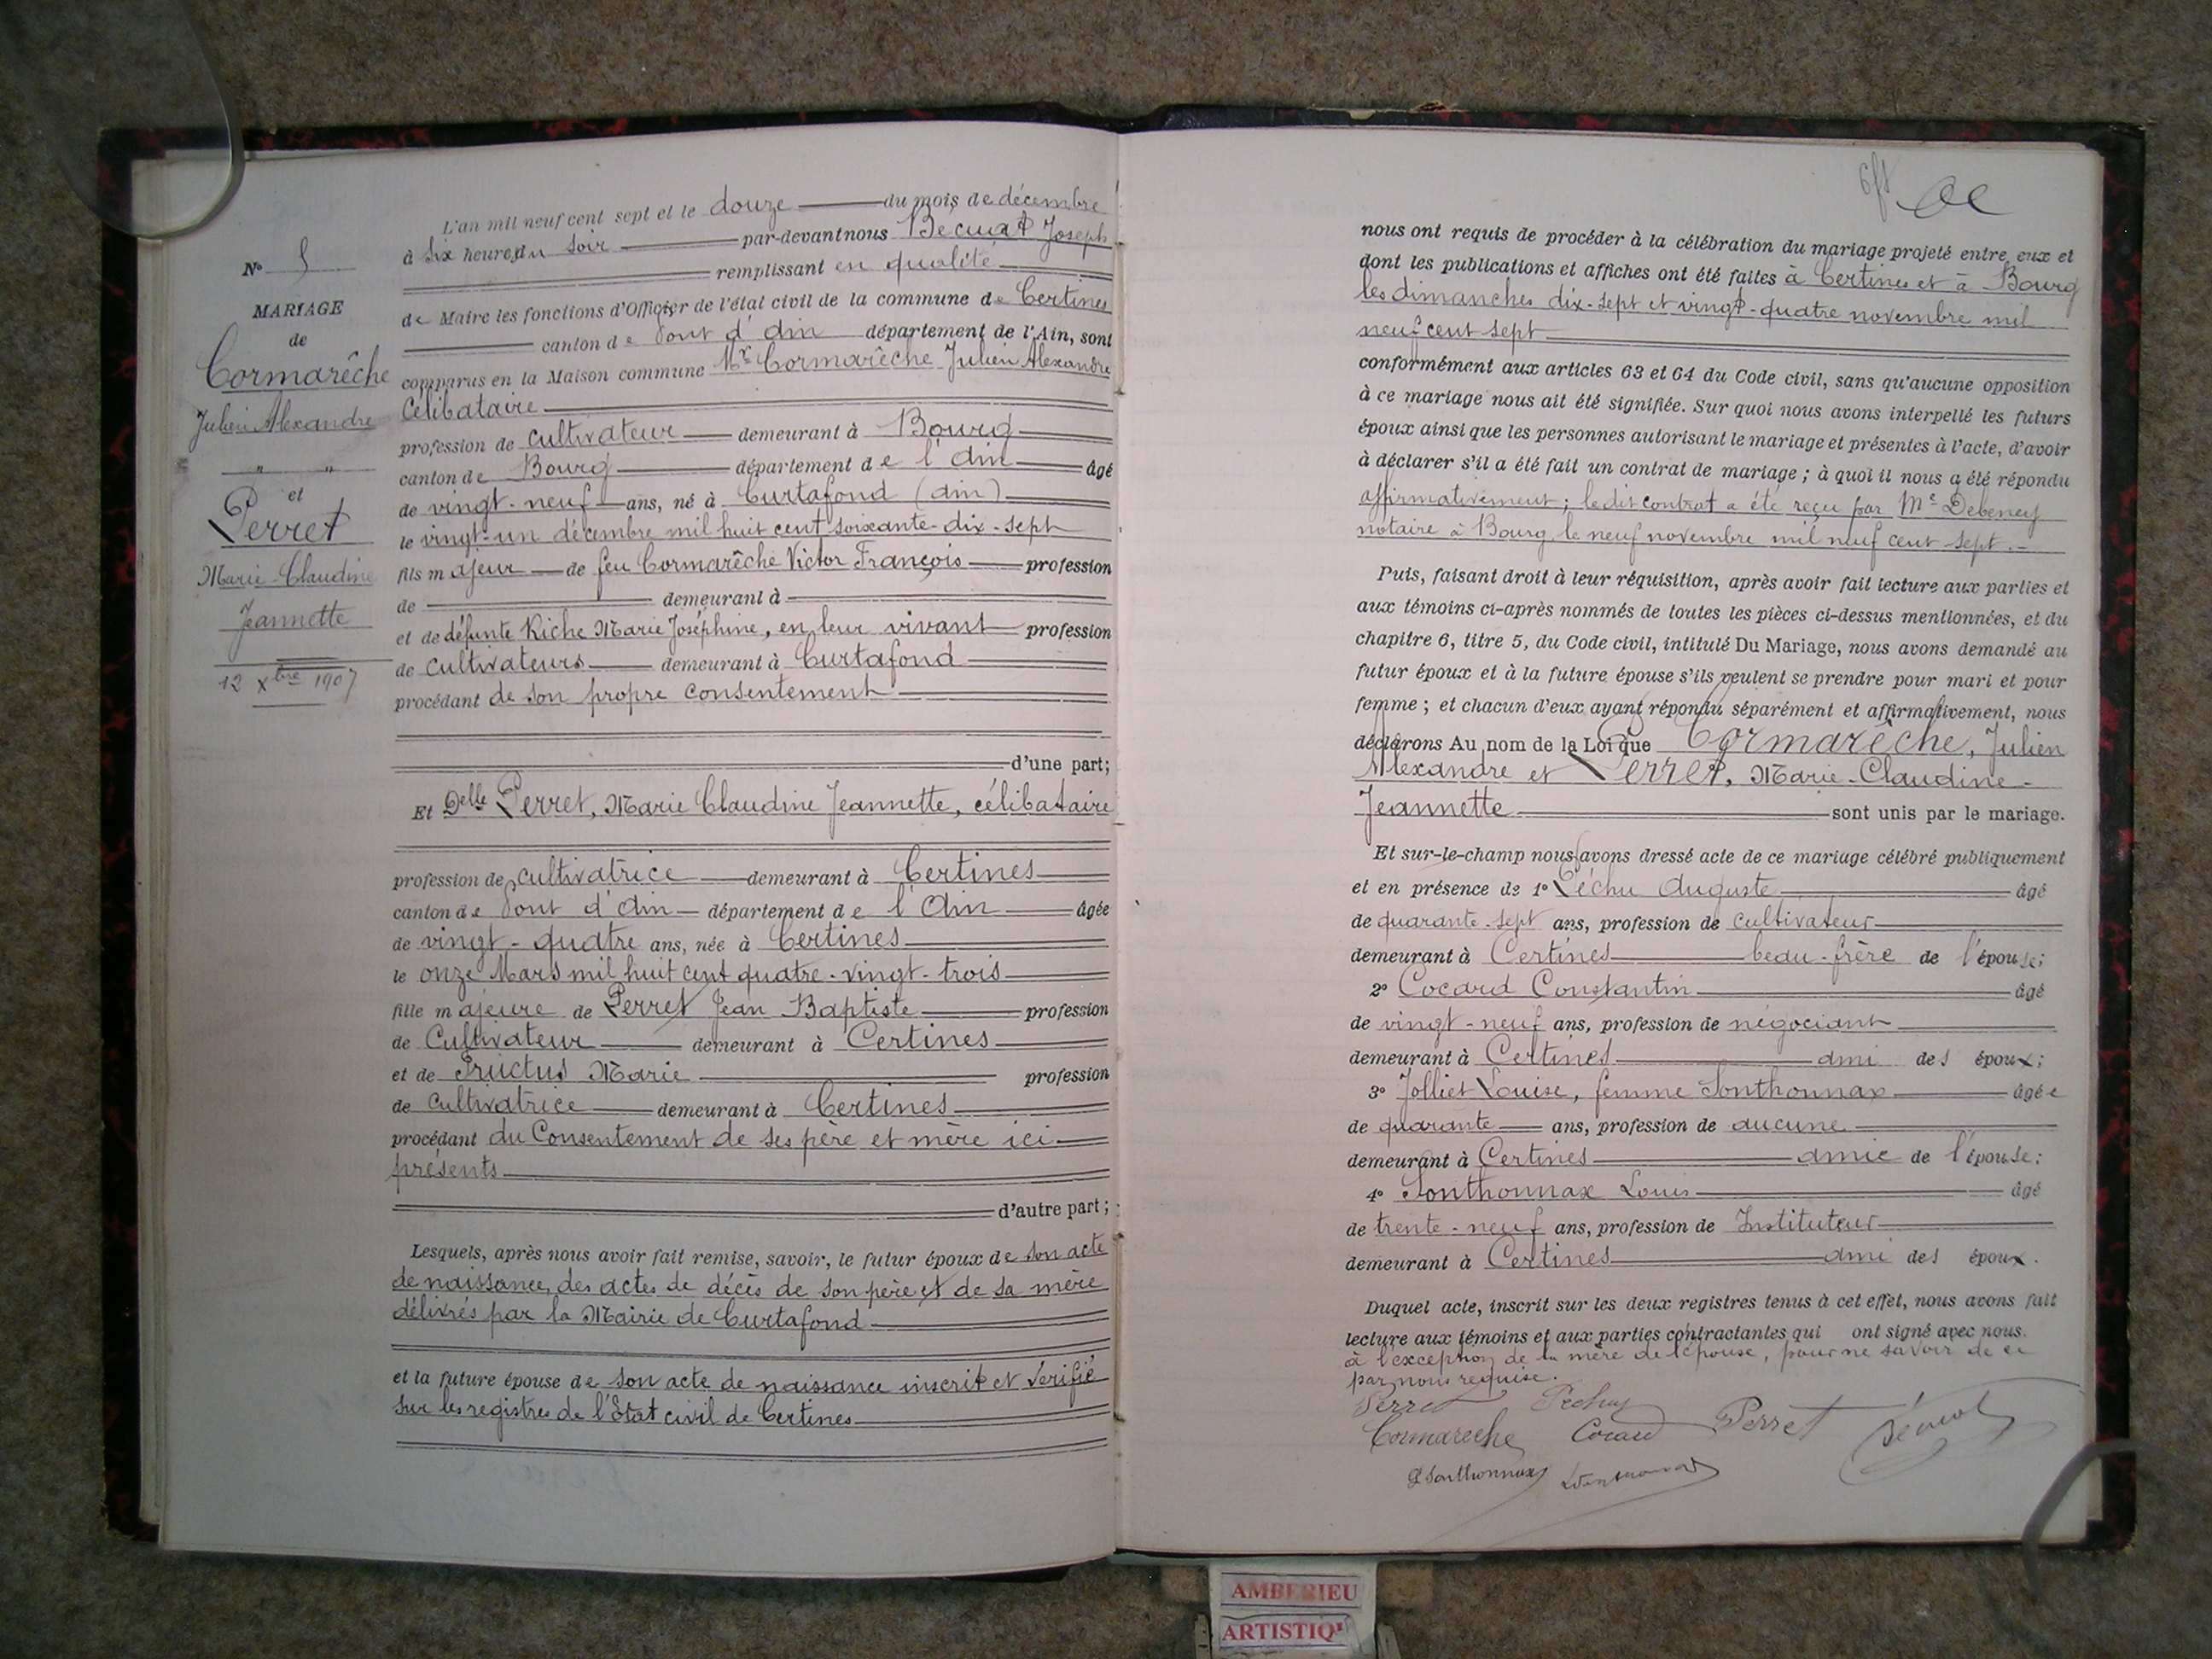 L'an mil neuf cent sept et le douze du mois de décembre
à six heures du soir par-devant nous Becuat Joseph
remplissant en qualité
de Maire les fonctions d'Officier de l'état civil de la commune de Certines
canton de Pont d'Ain département de l'Ain, sont
comparus en la Maison commune Mr Cormarêche Julien Alexandre
Célibataire
profession de cultivateur demeurant à Bourg
canton de Bourg département de l'Ain âgé
de vingt-neuf ans, né à Curtafond (Ain)
le vingt-un décembre mil huit cent soixante-dix-sept
fils majeur de feu Cormarêche Victor François profession
de demeurant à
et de défunte Riche Marie Joséphine, en leur vivant profession
de cultivateurs demeurant à Curtafond
procédant de son propre consentement
d'une part;
Et Delle Perret, Marie Claudine Jeannette, célibataire
profession de cultivatrice demeurant à Certines
canton de Pont d'Ain département de l'Ain âgée
de vingt-quatre ans, née à Certines
le onze Mars mil huit cent quatre-vingt-trois
fille majeure de Perret Jean Baptiste profession
de Cultivateur demeurant à Certines
et de Fructus Marie profession
de Cultivatrice demeurant à Certines
procédant du Consentement de ses père et mère ici
présents
d'autre part;
Lesquels, après nous avoir fait remise, savoir, le futur époux de son acte
de naissance, des actes de décès de son père et de sa mère
délivrés par la Mairie de Curtafond
et la future épouse de son acte de naissance inscrit et vérifié
sur les registres de l'État civil de Certines
N° 5
MARIAGE
de
Cormarêche
Julien Alexandre
" "
et
Perret
Marie-Claudine
Jeannette
12 Xbre 1907
nous ont requis de procéder à la célébration du mariage projeté entre eux et
dont les publications et affiches ont été faites à Certines et à Bourg
les dimanches dix-sept et vingt-quatre novembre mil
neuf cent sept
conformément aux articles 63 et 64 du Code civil, sans qu'aucune opposition
à ce mariage nous ait été signifiée. Sur quoi nous avons interpellé les futurs
époux ainsi que les personnes autorisant le mariage et présentes à l'acte, d'avoir
à déclarer s'il a été fait un contrat de mariage; à quoi il nous a été répondu
affirmativement; le dit contrat a été reçu par Me Debeney
notaire à Bourg le neuf novembre mil neuf cent sept.-
Puis, faisant droit à leur réquisition, après avoir fait lecture aux parties et
aux témoins ci-après nommés de toutes les pièces ci-dessus mentionnées, et du
chapitre 6, titre 5, du Code civil, intitulé Du Mariage, nous avons demandé au
futur époux et à la future épouse s'ils veulent se prendre pour mari et pour
femme; et chacun d'eux ayant répondu séparément et affirmativement, nous
déclarons Au nom de la Loi que Cormarêche, Julien
Alexandre et Perret, Marie-Claudine-
Jeannette sont unis par le mariage.
Et sur-le-champ nous avons dressé acte de ce mariage célébré publiquement
et en présence de 1° Péchu Auguste âgé
de quarante-sept ans, profession de cultivateur
demeurant à Certines beau-frère de l'épouse;
2° Cocard Constantin âgé
de vingt-neuf ans, profession de négociant
demeurant à Certines ami des époux;
3° Jolliet Louise, femme Sonthonnax âgée
de quarante ans, profession de aucune
demeurant à Certines amie de l'épouse;
4° Sonthonnax Louis âgé
de trente-neuf ans, profession de Instituteur
demeurant à Certines ami des époux.
Duquel acte, inscrit sur les deux registres tenus à cet effet, nous avons fait
lecture aux témoins et aux parties contractantes qui ont signé avec nous.
à l'exception de la mère de l'épouse, pour ne savoir de ce
par nous requise.
Perret Pechu
Cormareche Cocard Perret
Sonthonnax
AMBERIEU
ARTISTIQ